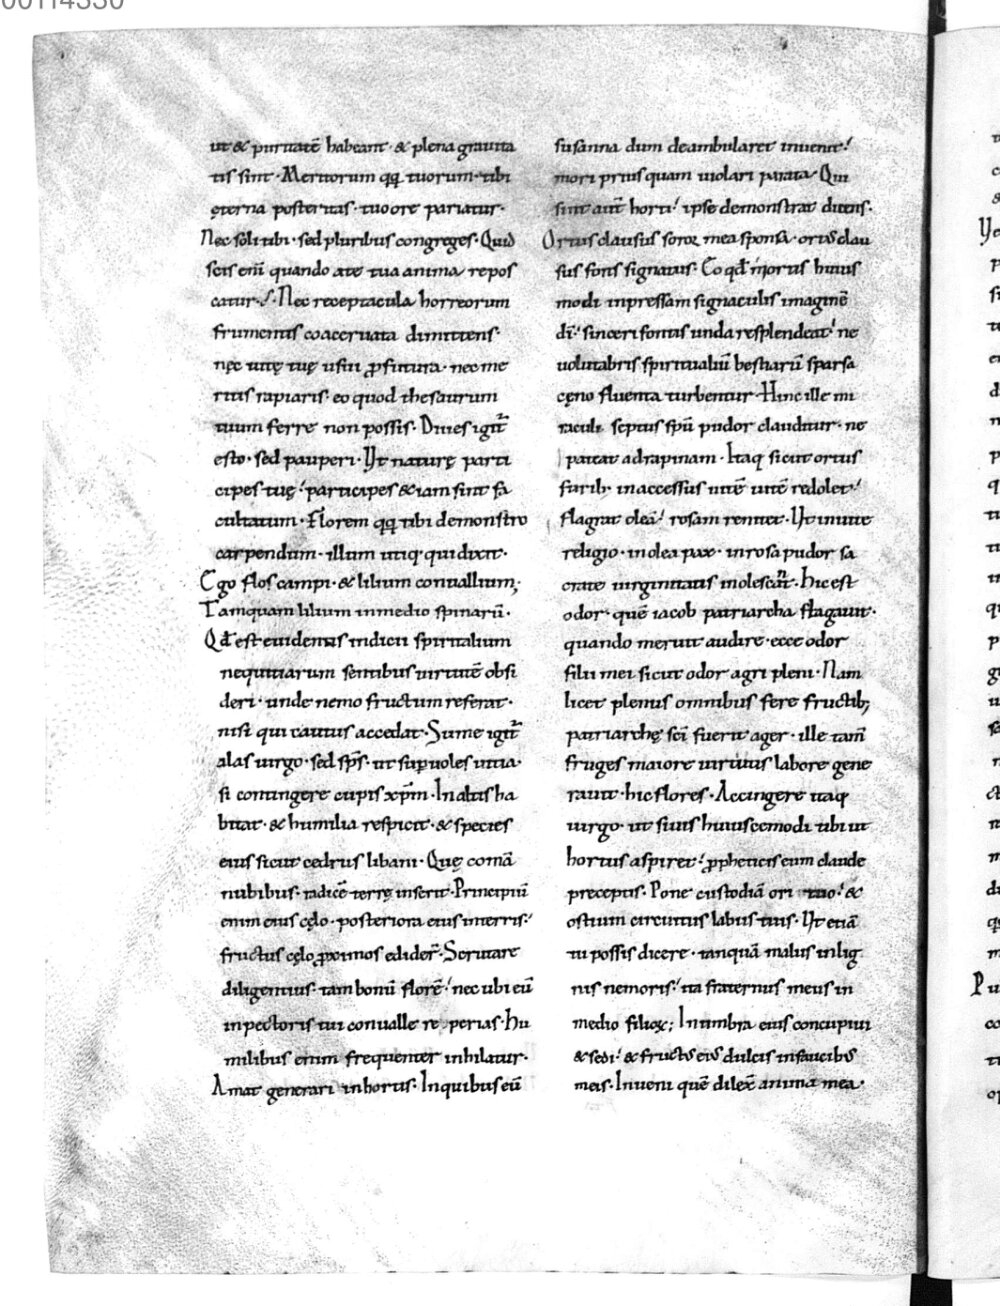 00114330
ut & puritatē habeant · & plena grauita
tis sint · Meritorum qq; tuorum · tibi
ęterna posteritas · tuo ore pariatur ·
Nec soli tibi · sed pluribus congreges · Quid
scis eni͞ quando a te tua anima repos
catur · Nec receptacula horreorum
frumentis coaceruata dimittens ·
nec uitę tuę usui ꝓfutura · nec me
ritis rapiaris · eo quod thesaurum
tuum ferre non possis · Diues igit᷑
esto · sed pauperi · Vt naturę parti
cipes tuę · participes & iam sint fa
cultatum · Florem qq; tibi demonstro
carpendum · illum utiq; qui dixit ·
Ego flos campi · & lilium conuallium;
Tamquam lilium in medio spinarū ·
Qd̄ est euidentis indicii spiritalium
nequitiarum sentibus uirtutē obsi
deri · unde nemo fructum referat ·
nisi qui cautus accedat · Sume igit᷑
alas uirgo · sed sp̄s · ut sup̱uoles uitia ·
si contingere cupis xp̄m · In altis ha
bitat · & humilia respicit · & species
eius sicut cedrus libani · Quę comā
nubibus · radicē terrę inserit · Principiū
enim eius cęlo · posteriora eius in terris ·
fructus cęlo ꝓximos edider̄ · Scrutare
diligentius · tam bonū florē · necubi eū
in pectoris tui conualle repperias · hu
milibus enim frequenter inhilatur ·
Amat generari in hortis · In quibus eū
susanna dum deambularet inuenit ·
mori prius quam uiolari parata · Qui
sint aut̄ horti · ipse demonstrat dicens ·
Ortus clausus soror mea sponsa · ortus clau
sus fons signatus · Eo qd̄ in ortis huius
modi inpressam signaculis imaginē
dī · sinceri fontis unda resplendeat · ne
uolutabris spiritualiū bestiarū sparsa
cęno fluenta turbentur · Hinc ille mu
rali septus spū pudor clauditur · ne
pateat ad rapinam · Itaq; sicut ortus
furib; inaccessus uitē redolet ·
flagrat oleā · rosam renitet · Vt in uite
religio · in olea pax · in rosa pudor sa
cratę uirginitatis inolescat · hic est
odor · quē iacob patriarcha flagauit ·
quando meruit audire · ecce odor
filii mei sicut odor agri pleni · Nam
licet plenus omnibus fere fructib;
patriarchę sc̄i fuerit ager · ille tam̄
fruges maiore uirtutis labore gene
rauit · hic flores · Accingere itaq;
uirgo · ut si uis huiuscemodi tibi ut
hortus aspiret · ꝓpheticis eum claude
preceptis · Pone custodiā ori tuo · &
ostium circuitus labiis tuis · Vt etiā
tu possis dicere · tanquā malus in lig
nis nemoris · ita fraternus meus in
medio filioꝝ; In umbra eius concupiui
& sedi · & fructus eius dulcis in faucibus
meis · Inueni quē dilex̄ anima mea ·